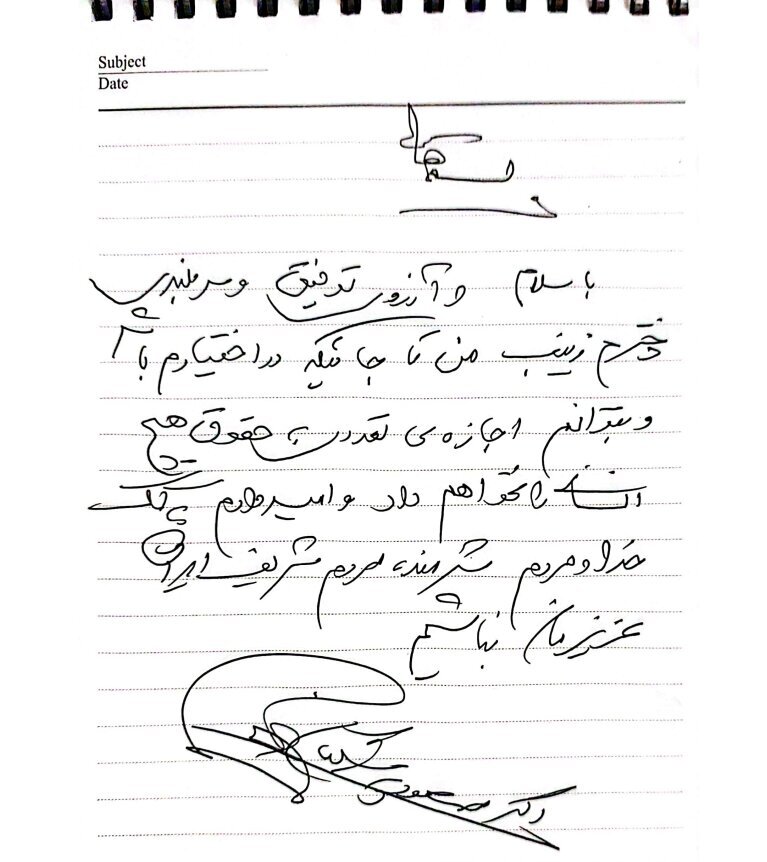 Subject
Date
بسمه تعالی
با سلام و آرزوی توفیق و سربلندی
دخترم زینب من تا جائیکه در اختیارم باشد
و بتوانم اجازه ی تعدی به حقوق هیچ
انسانی را نخواهم داد و امیدوارم به کمک
خدا و مردم شرمنده مردم شریف ایران
عزیزمان نباشیم
دکتر مسعود